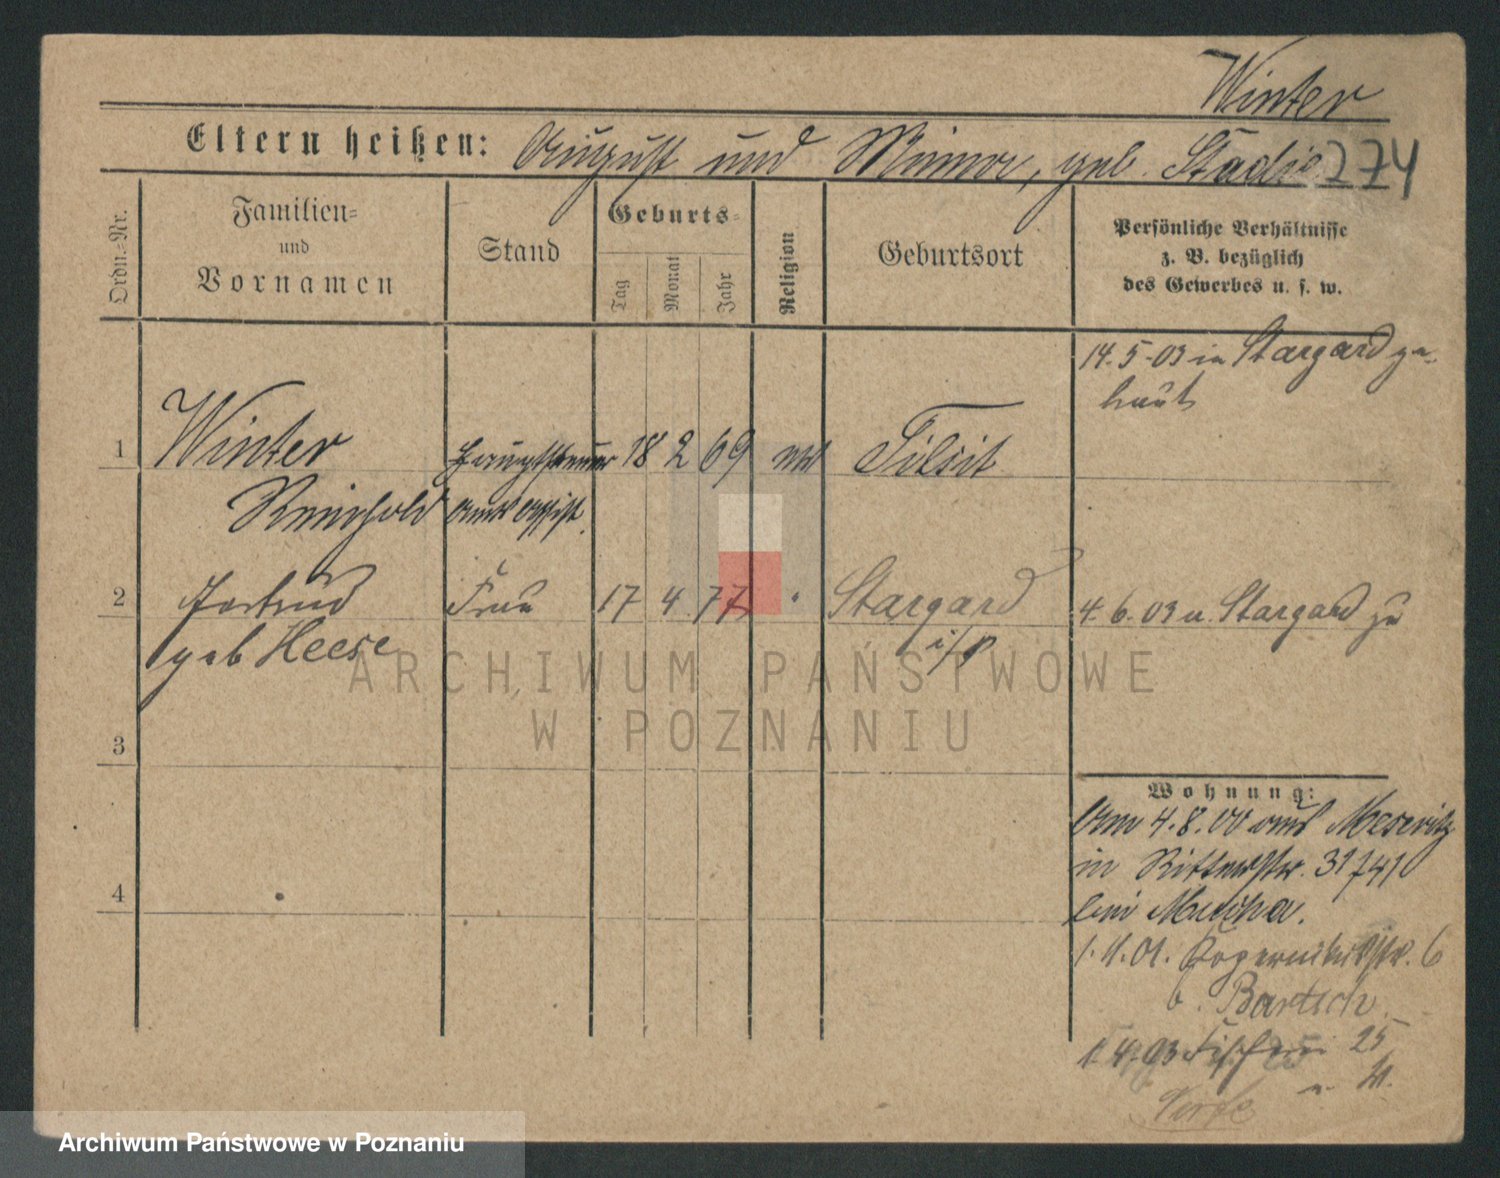 Winter
Eltern heißen: August und Minna, geb. Stadie 274
Ordn.=Nr.
Familien=
und
Vornamen
Stand
Geburts=
Tag
Monat
Jahr
Religion
Geburtsort
Persönliche Verhältnisse
z. B. bezüglich
des Gewerbes u. s. w.
14. 5. 03 in Stargard ge-
traut
1 Winter Hauptsteuer 18 2 69 Tilsit
Reinhold amts assist.
2 Gertrud Frau 17 4 77 " Stargard 4. 6. 03 v. Stargard zu
geb Heese i/P
3
Wohnung:
Am 4. 8. 00 aus Meseritz
in Ritterstr. 31
4
bei Mucha.
1. 4. 01. Kopernikusstr. 6
b. Bartsch
1. 4. 03 25
ARCHIWUM PAŃSTWOWE
W POZNANIU
Archiwum Państwowe w Poznaniu